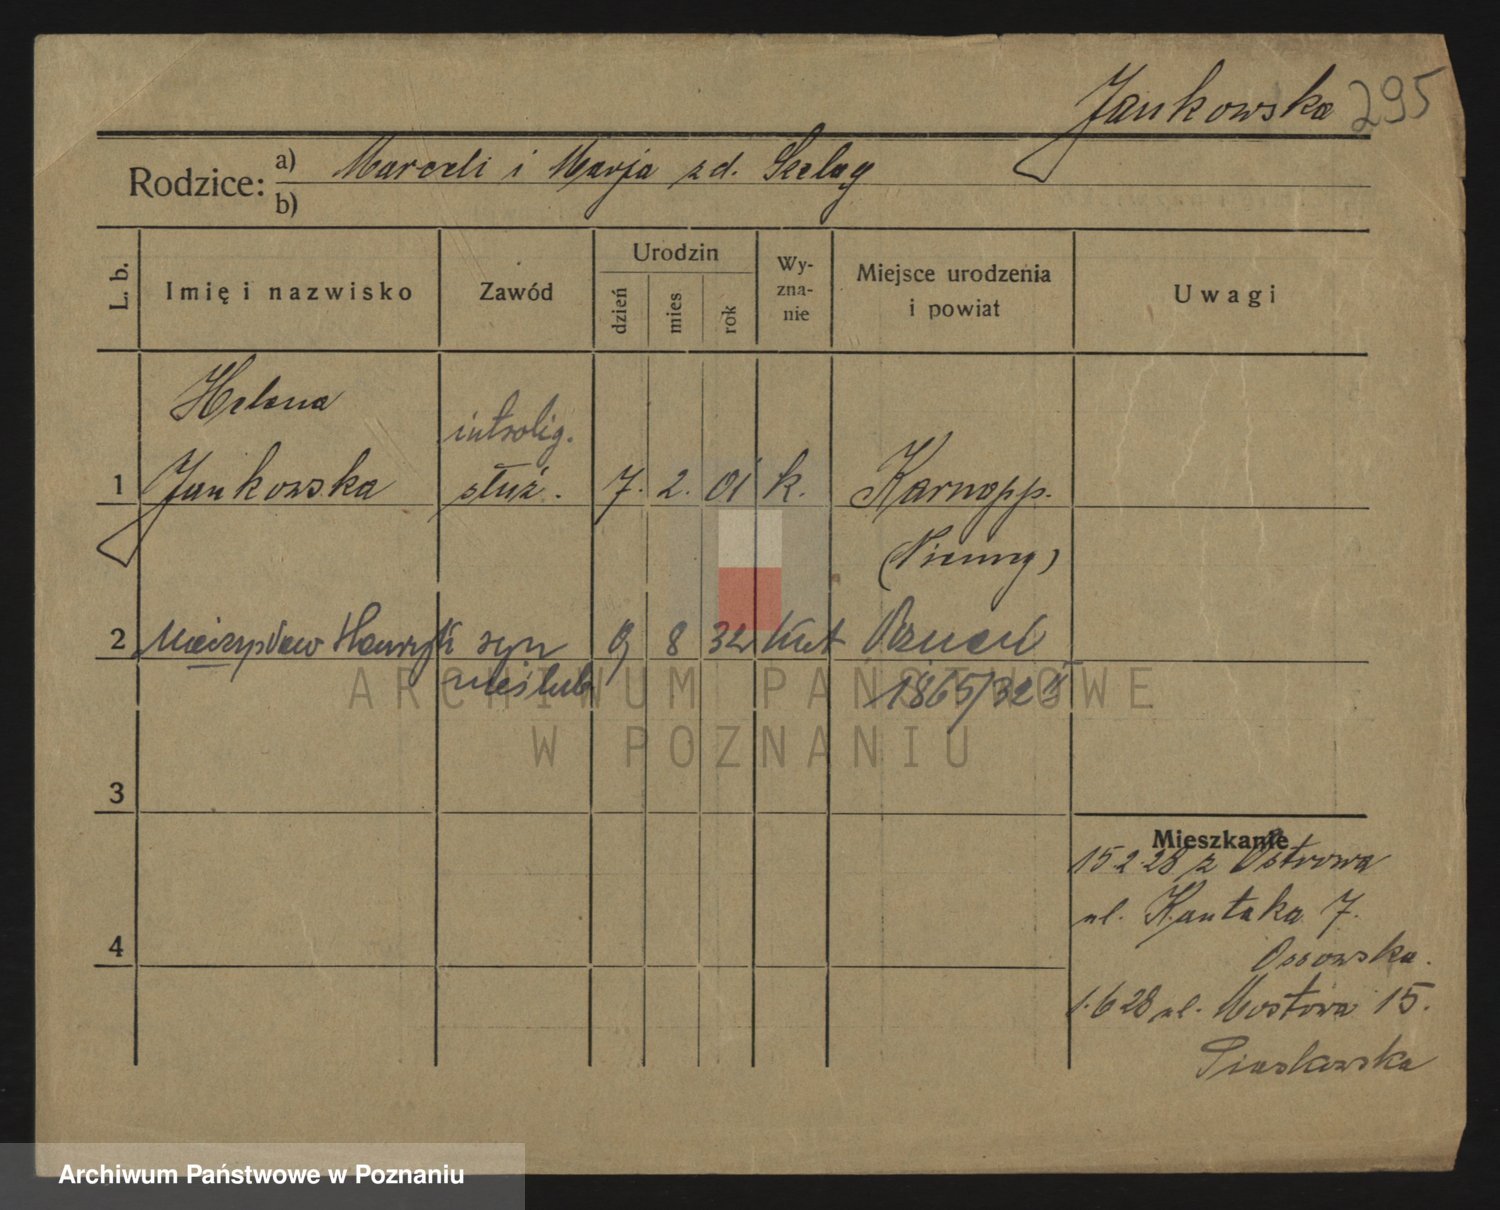 Jankowska 295
Rodzice: a) Marceli i Marja zd. Szeląg
b)
L. b. Imię i nazwisko Zawód Urodzin dzień mies rok Wy-zna-nie Miejsce urodzenia i powiat Uwagi
Helena introlig.
1 Jankowska służ. 7. 2. 01 k. Karnapp.
(Niemcy)
2 Mieczysław Henryk syn 9 8 32 kat Poznań
nieślub 1865/32 II
3
Mieszkanie
15 2 28 z Ostrowa
ul. Kantaka 7.
4 Ossowska.
1.6 28 ul. Mostowa 15.
Piaskowska
ARCHIWUM PAŃSTWOWE
W POZNANIU
Archiwum Państwowe w Poznaniu